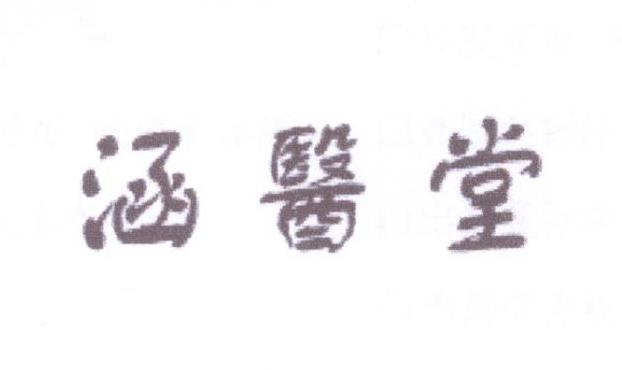 涵醫堂